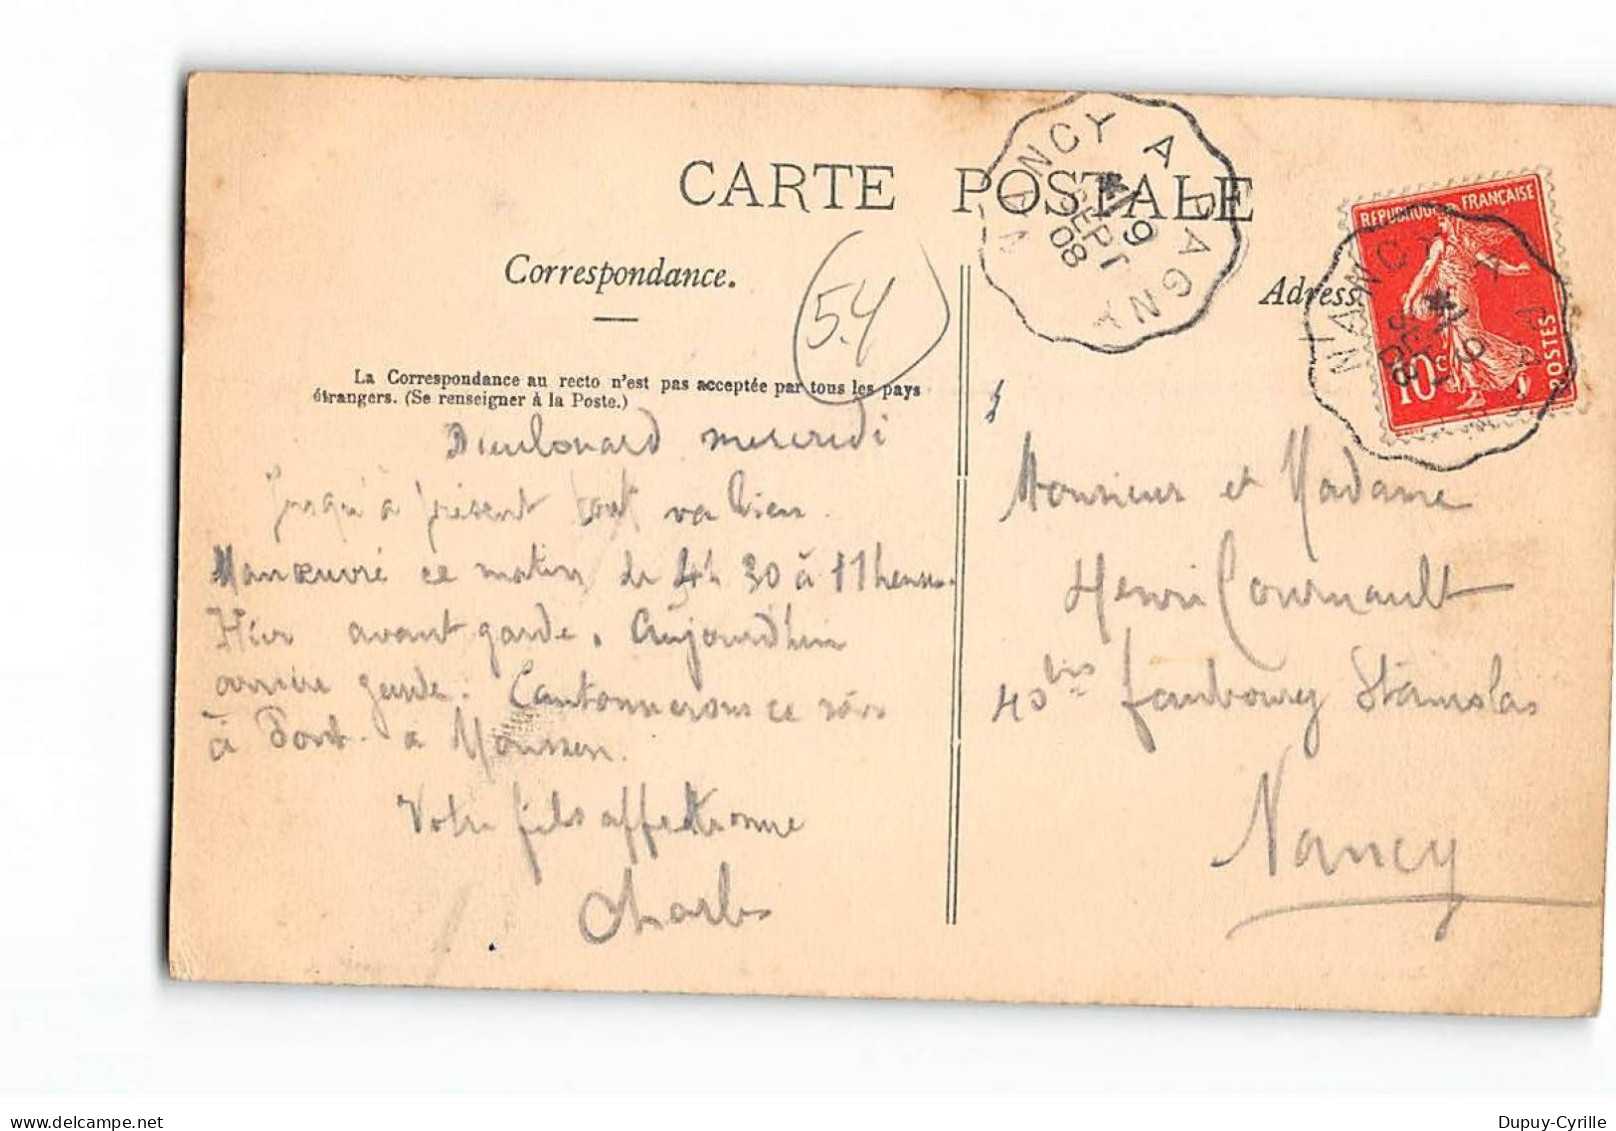 CARTE POSTALE
Correspondance.
Adresse
54
La Correspondance au recto n'est pas acceptée par tous les pays
étrangers. (Se renseigner à la Poste.)
NANCY A PAGNY
9
SEPT
08
REPUBLIQUE FRANÇAISE
10c
POSTES
NANCY A PAGNY
9
SEPT
08
Dieulouard mercredi
Jusqu'à présent tout va bien.
Manœuvré ce matin de 4h 30 à 11 heures.
Hier avant garde. Aujourd'hui
arrière garde. Cantonnerons ce soir
à Pont-a Mousson.
Votre fils affectionné
Charles
Monsieur et Madame
Henri Cournault
40 bis faubourg Stanislas
Nancy
Dupuy-Cyrille
www.delcampe.net